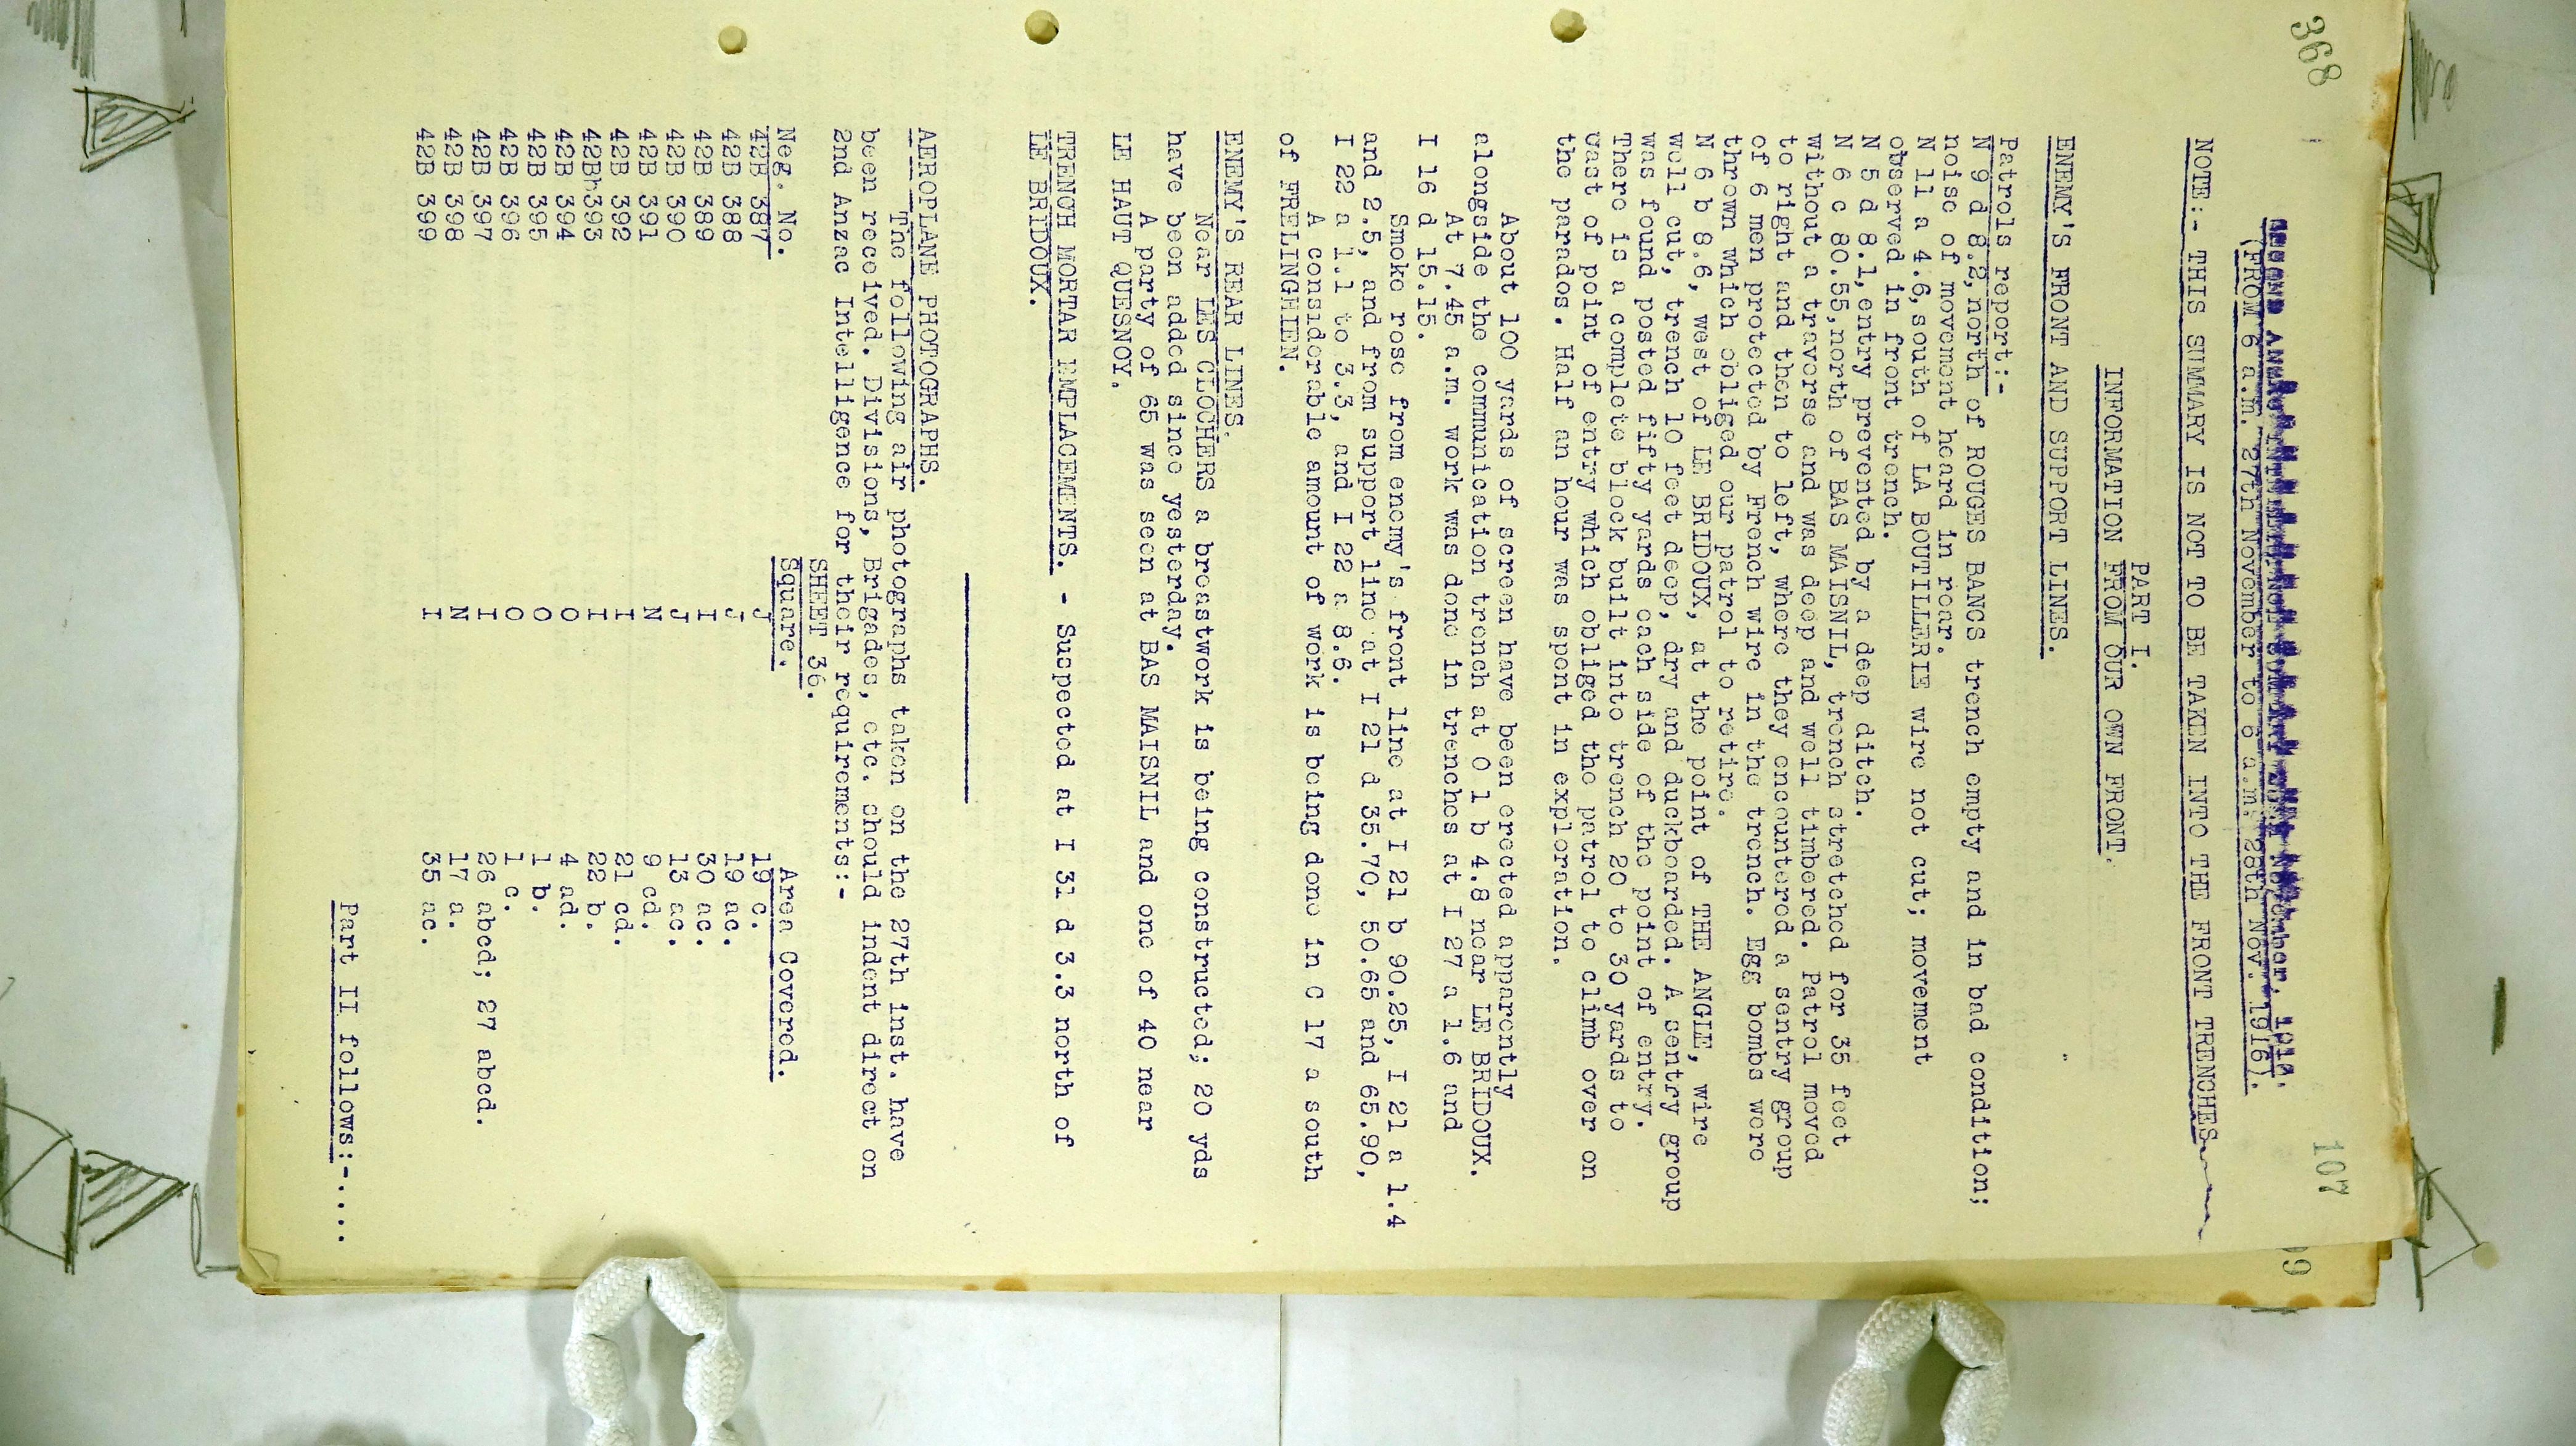 368
107
SECOND ANZAC
(FROM 6 a.m. 27th November to 6 a.m. 28th Nov. 1916).
NOTE:- THIS SUMMARY IS NOT TO BE TAKEN INTO THE FRONT TRENCHES
PART I.
INFORMATION FROM OUR OWN FRONT.
ENEMY'S FRONT AND SUPPORT LINES.
Patrols report:-
N 9 d 8.2, north of ROUGES BANCS trench empty and in bad condition;
noise of movement heard in rear.
N 11 a 4.6, south of LA BOUTILLERIE wire not cut; movement
observed in front trench.
N 5 d 8.1, entry prevented by a deep ditch.
N 6 c 80.55, north of BAS MAISNIL, trench stretched for 35 feet
without a traverse and was deep and well timbered. Patrol moved
to right and then to left, where they encountered a sentry group
of 6 men protected by French wire in the trench. Egg bombs were
thrown which obliged our patrol to retire.
N 6 b 8.6, west of LE BRIDOUX, at the point of THE ANGLE, wire
well cut, trench 10 feet deep, dry and duckboarded. A sentry group
was found posted fifty yards each side of the point of entry.
There is a complete block built into trench 20 to 30 yards to
east of point of entry which obliged the patrol to climb over on
the parados. Half an hour was spent in exploration.
About 100 yards of screen have been erected apparently
alongside the communication trench at O 1 b 4.8 near LE BRIDOUX.
At 7.45 a.m. work was done in trenches at I 27 a 1.6 and
I 16 d 15.15.
Smoke rose from enemy's front line at I 21 b 90.25, I 21 a 1.4
and 2.5, and from support line at I 21 d 35.70, 50.65 and 65.90,
I 22 a 1.1 to 3.3, and I 22 a 8.6.
A considerable amount of work is being done in C 17 a south
of FRELINGHIEN.
ENEMY'S REAR LINES.
Near LES CLOCHERS a breastwork is being constructed; 20 yds
have been added since yesterday.
A party of 65 was seen at BAS MAISNIL and one of 40 near
LE HAUT QUESNOY.
TRENCH MORTAR EMPLACEMENTS. - Suspected at I 31 d 3.3 north of
LE BRIDOUX.
AEROPLANE PHOTOGRAPHS.
The following air photographs taken on the 27th inst. have
been received. Divisions, Brigades, etc. should indent direct on
2nd Anzac Intelligence for their requirements:-
SHEET 36.
Neg. No. Square. Area Covered.
42B 387 J 19 c.
42B 388 J 19 ac.
42B 389 I 30 ac.
42B 390 J 13 ac.
42B 391 N 9 cd.
42B 392 I 21 cd.
42Bh393 I 22 b.
42B 394 O 4 ad.
42B 395 O 1 b.
42B 396 O 1 c.
42B 397 I 26 abcd; 27 abcd.
42B 398 N 17 a.
42B 399 I 35 ac.
Part II follows:-....